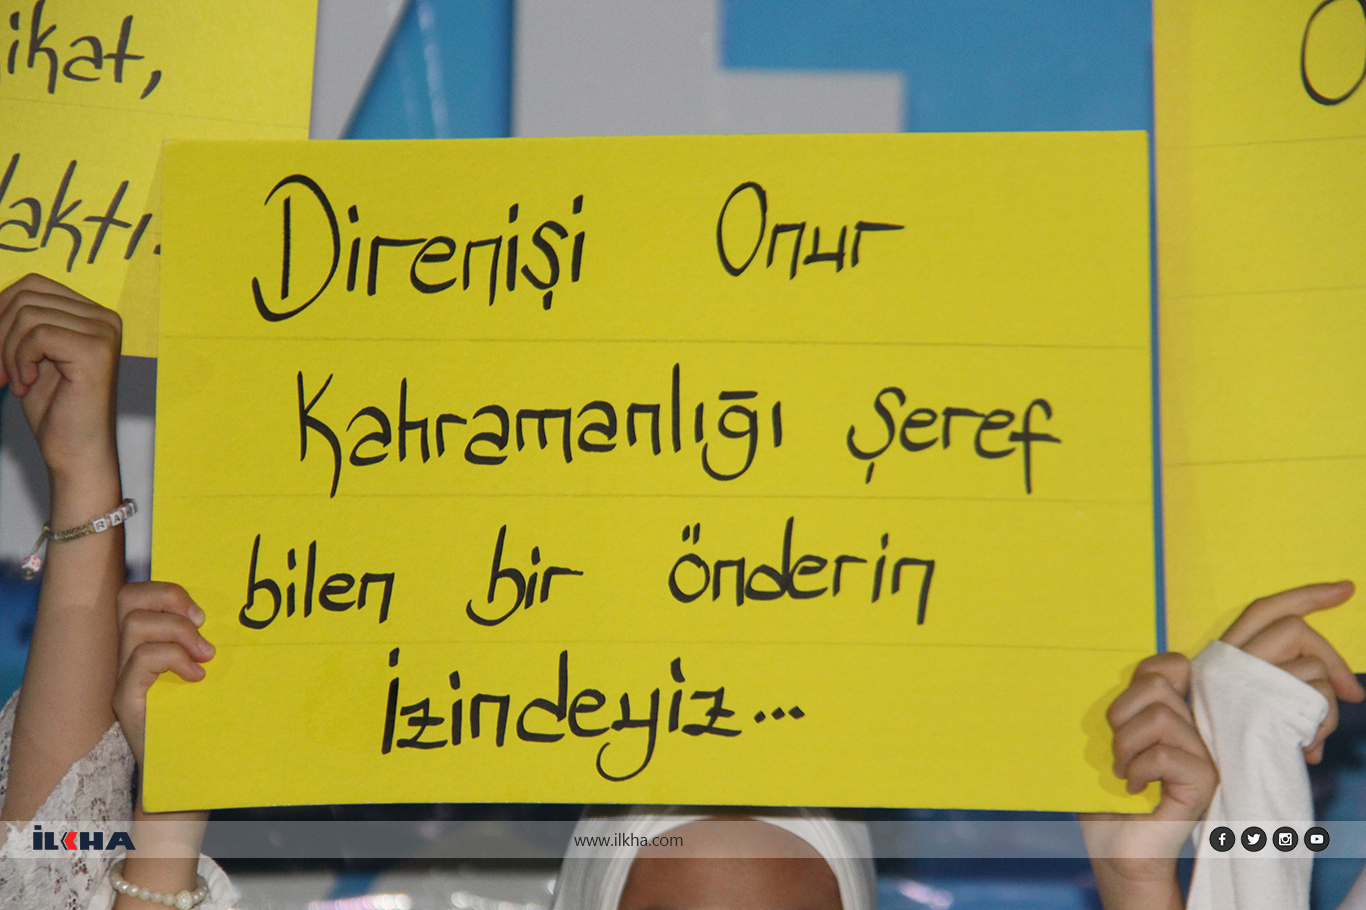 ikat,
aktı.
Direnişi Onur
Kahramanlığı Şeref
bilen bir önderin
İzindeyiz...
O
İLKHA
www.ilkha.com